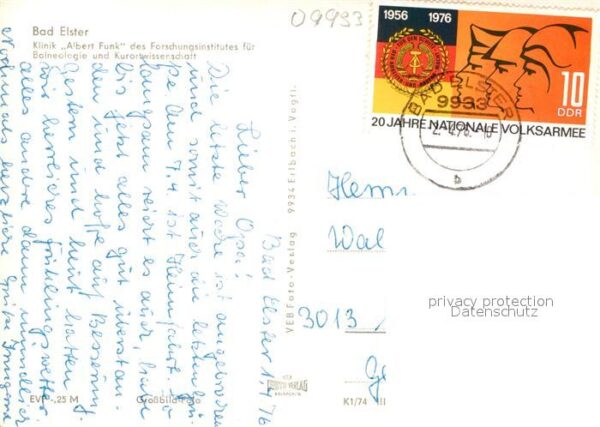 09933
Bad Elster
Klinik „Albert Funk" des Forschungsinstitutes für
Balneologie und Kurortwissenschaft
1956 1976
10
DDR
20 JAHRE NATIONALE VOLKSARMEE
BAD ELSTER
9933
b
Bad Elster 1.4.76
Lieber Opa!
Die letzte Woche ist angebrochen
und somit auch die letzten
7.4. ist Heimfahrt.
langsam reicht es auch, habe
bis jetzt alles gut überstan-
den und hoffe auf Besserung.
Gestern und heut hatten
wir herrliches Frühlingswetter.
alles andere dann mündlich
Nochmals herzliche Grüße
VEB Foto-Verlag 9934 Erlbach i. Vogtl.
Herrn
Wal
3013
privacy protection
Datenschutz
EVP -,25 M
Großbild-Foto
K1/74